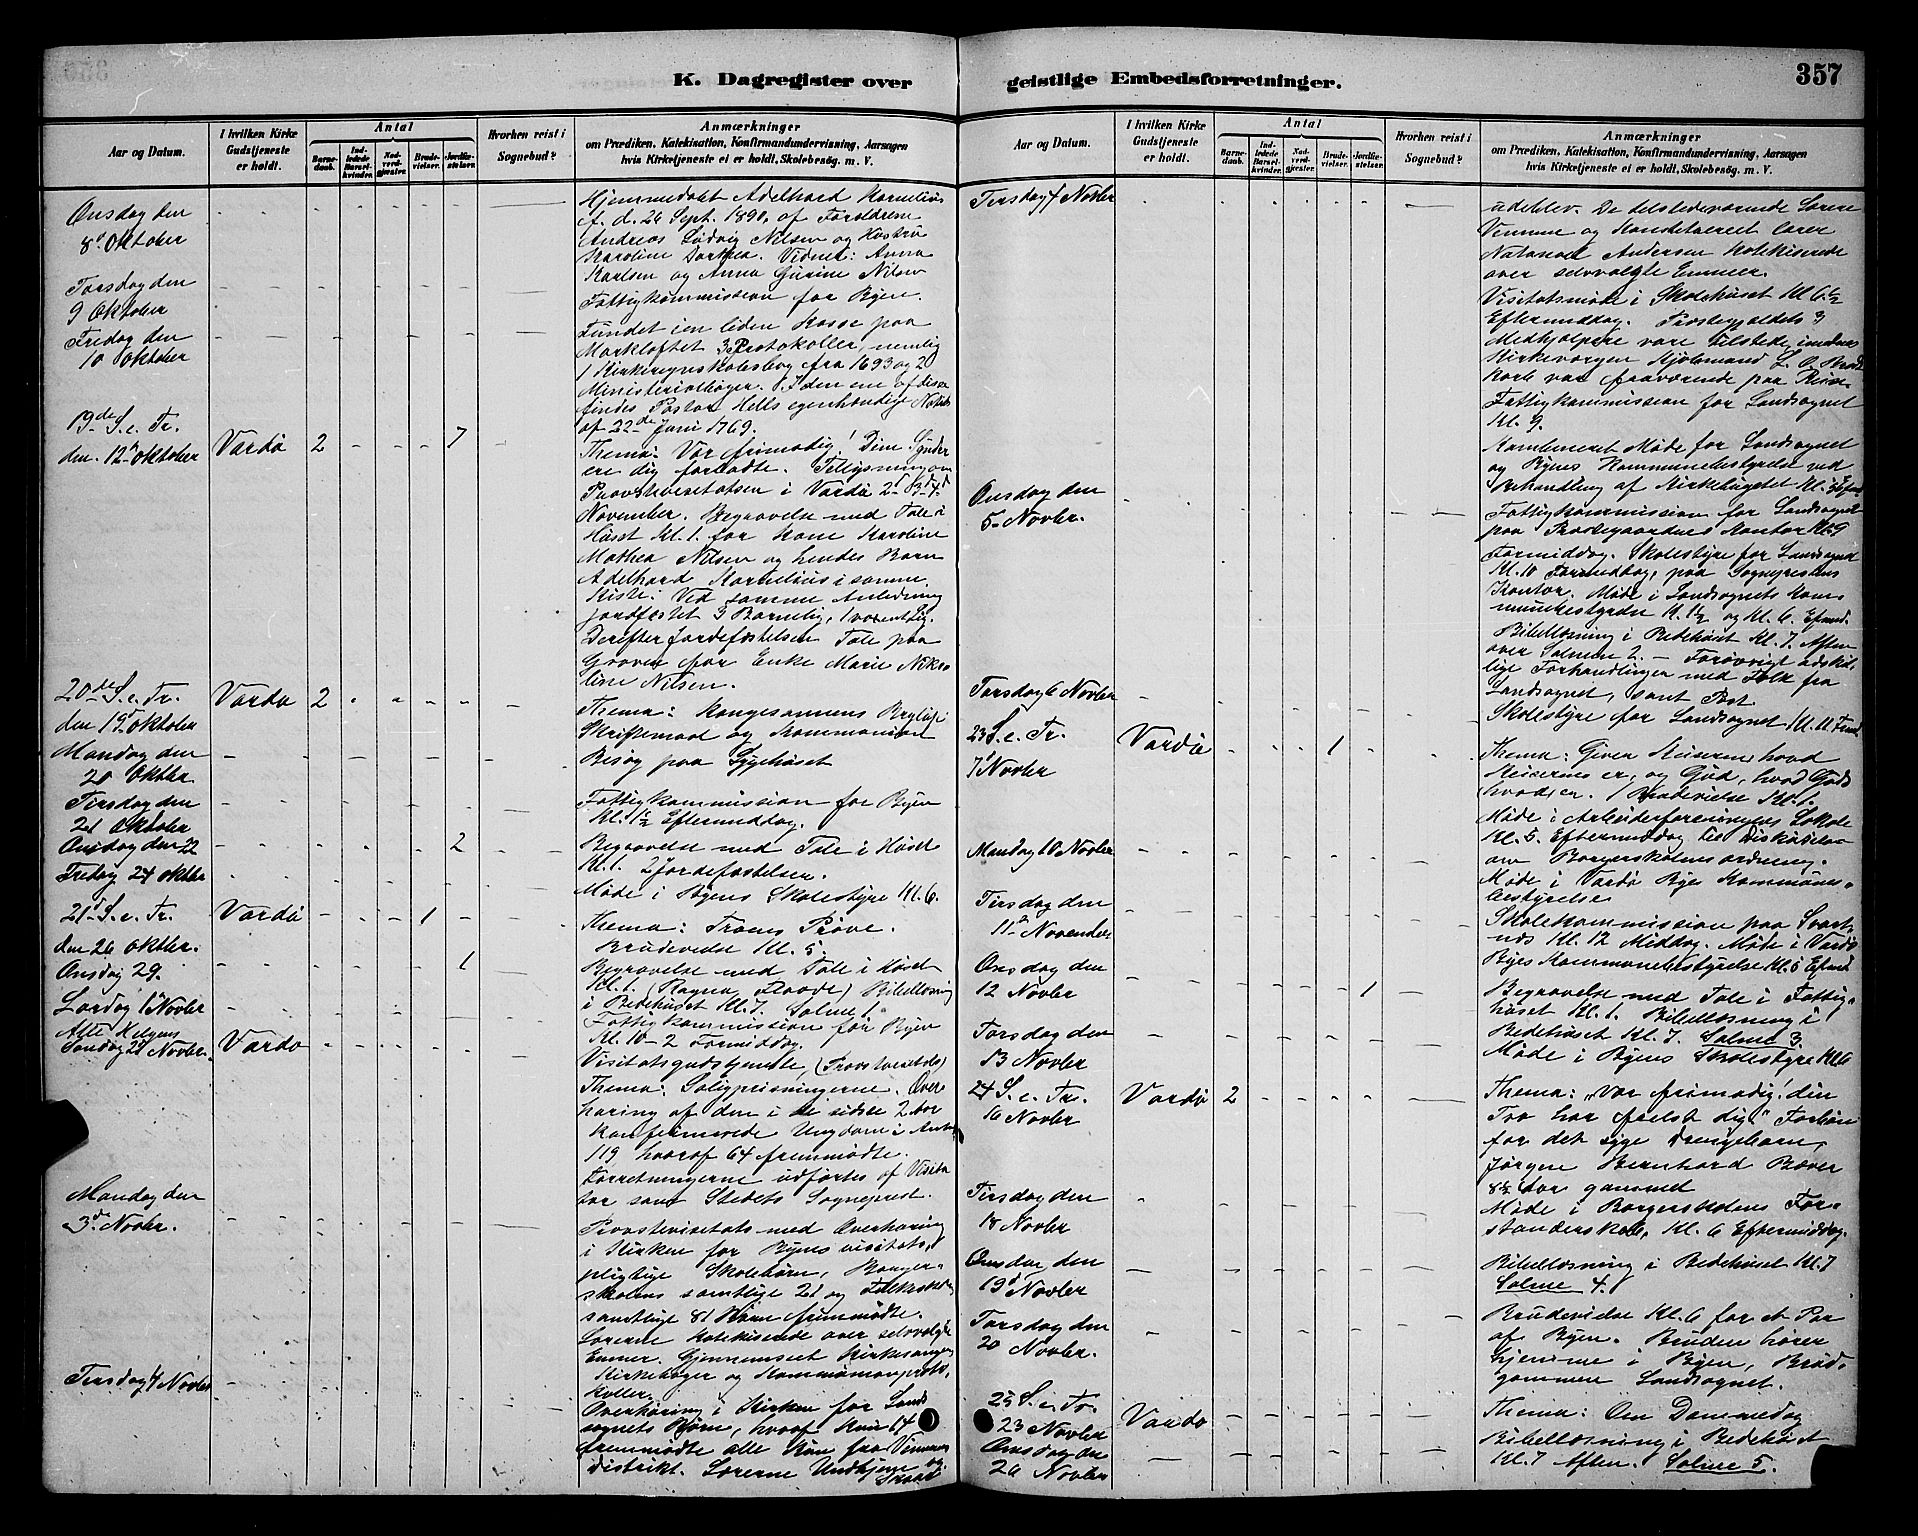 K. Dagregister over
geistlige Embedsforretninger.
357
Aar og Datum.
I hvilken Kirke Gudstjeneste er holdt.
Antal
Barnedaab.
Indledede Barselkvinder.
Nadverdgjæster.
Brudevielser.
Jordfæstelser.
Hvorhen reist i Sognebud?
Anmærkninger
om Prædiken, Katekisation, Konfirmandundervisning, Aarsagen
hvis Kirketjeneste ei er holdt, Skolebesøg. m. V.
Onsdag den
8de Oktober
Hjemmedøbt Adelhard Kornelius
f. d. 26 Sept. 1890, af Forældrene
Andreas Ludvig Nilsen og Hustru
Karoline Dorthea. Vidner: Anna
Karlsen og Anna Gurine Nilsen
Torsdag den
9 Oktober
Fattigkommission for Byen.
Fredag den
10 Oktober
Fundet i en liden Kasse paa
Mørkloftet 3 Protokoller, nemlig
1 Kirkeregnskabsbog fra 1693 og 2
Ministerialbøger. I den ene af disse
findes Pastor Hells egenhændige Notits
af 22de Juni 1769.
19de S. e. Tr.
den 12te Oktober
Vardö 2 7
Thema: Vær frimodig! Dine Synder
ere dig forladte. Tillysning om
Provstevisitatsen i Vardö 2den 3die 4de
November. Begravelse med Tale i
Huset Kl. 1. for Kone Karoline
Mathea Nilsen og hendes Barn
Adelhard Kornelius i samme
Kiste. Ved samme Anledning
jordfæstet 3 Barnelig, 1 voxent Lig.
Derefter Jordfæstelsen Tale paa
Graven for Enke Marie Niko-
line Nilsen.
20de S. e. Tr.
den 19de Oktober
Vardö 2
Thema: Kongesønnens Bryllup
Skriftemaal og Kommunion
Mandag den
20 Oktber
Besøg paa Sygehuset
Tirsdag den
21 Oktober
Fattigkommission for Byen
Kl. 1½ Eftermiddag.
Onsdag den 22
2
Begravelse med Tale i Huset
Kl. 1. 2 Jordefæstelser.
Fredag 24 Oktbr
Møde i Byens Skolestyre Kl. 6.
21de S. e. Tr.
den 26 Oktbr.
Vardö 1
Thema: Troens Prøve.
Brudevielse Kl. 5
Onsdag 29.
1
Begravelse med Tale i Huset
Kl. 1. (Ragna) Bibellæsning
i Bedehuset Kl. 7. Salme 1.
Lørdag 1ste Novber
Fattigkommission for Byen
Kl. 10-2 Formiddag.
Alle Helgens
Søndag 2den Novber.
Vardö
Visitatsgudstjeneste, (Provstevisitats)
Thema: Saligprisningerne. Over
høring af den i de sidste 2 Aar
konfirmerede Ungdom i Antal
119 hvoraf 64 fremmødte.
Forretningerne udførtes af Visita
tor samt Stedets Sogneprest.
Mandag den
3die Novbr.
Provstevisitats med Overhøring
i Kirken for Byens visitats-
pligtige Skolebørn, Borger-
skolens samtlige 21 og Folkeskolens
samtlige 81 Børn fremmødte.
Lærerne katekiserede over selvvalgte
Emner. Gjennemseet Kirkesangen
Kirkebøger og Kommunionprotok
koller.
Tirsdag 4 Novber
Overhøring i Kirken for Land
sognets Børn, hvoraf kun 14
fremmødte alle kun fra
Distrikt. Lærerne Undhjem og
Tirsdag 4 Novber
udeblev. De tilstedeværende Lærere
og konstitueret Lærer
Andersen katekiserede
over selvvalgte Emner.
Visitatsmøde i Skolehuset Kl. 6½
Eftermiddag. Prestegjeldets 3
Medhjælpere vare tilstede, imedens
Kirkevergen Kjøbmand L. C. Brod
korb var fraværende paa Reise.
Fattigkommission for Landsognet
Kl. 9.
Kombineret Møde for Landsognet
og Byens Kommunebestyrelse ved
Behandling af Kirkebudgettet Kl. 3 Eftmd
Onsdag den
5te Novbr.
Fattigkommission for Landsognet
paa Prestegaardens Kontor Kl. 9
Formiddag. Skolestyre for Landsognet
Kl. 10 Formiddag, paa Sogneprestens
Kontor. Møde i Landsognets Kom
munebestyrelse Kl. 1½ og Kl. 6. Eftmd.
Bibellæsning i Bedehuset Kl. 7. Aften
over Salmen 2. - Forøvrigt adskil-
lige Forhandlinger med Folk fra
Landsognet, samt Post
Torsdag 6 Novber
Skolestyre for Landsognet Kl. 11 Formd
23 S. e. Tr.
9 Novber
Vardö 1
Thema: Giver Keiseren, hvad
Keiserens er, og Gud, hvad Guds
er. 1 Brudevielse Kl. 1.
Møde i Arbeiderforeningens Lokale
Kl. 5. Eftermiddag til Diskussion
om Borgerskolens ordning.
Mandag 10 Novber
Møde i Vardö Byes Kommune-
bestyrelse
Tirsdag den
11te November
Skolekommission paa Svart-
nes Kl. 12 Middag. Møde i Vardö
Byes Kommunebestyrelse Kl. 5 Eftmd
Onsdag den
12 Novber
1
Begravelse med Tale i Fattig-
huset Kl. 1. Bibellæsning i
Bedehuset Kl. 7. Salme 3.
Torsdag den
13 Novber
Møde i Byens Skolestyre Kl. 6
24 S. e. Tr.
16 Novber
Vardö 2
Thema: "Vær frimodig! din
Tro har frelst dig" Forbøn
for det syge Drengebarn,
Jørgen Bernhard Bæver
8½ Aar gammel
Tirsdag den
18 Novber
Møde i Borgerskolens For-
standerskab, Kl. 6 Eftermiddag.
Onsdag den
19de Novber
Bibellæsning i Bedehuset Kl. 7
Salme 4.
Torsdag den
20 Novber.
Brudevielse Kl. 6 for et Par
af Byen. Bruden hører
hjemme i Byen, Brud-
gommen Landsognet.
25 S. e. Tr.
23 Novber
Vardö
Thema: Om Dommedag
Onsdag den
26 Novber
Bibellæsning i Bedehuset
Kl. 7 Aften. Salme 5.